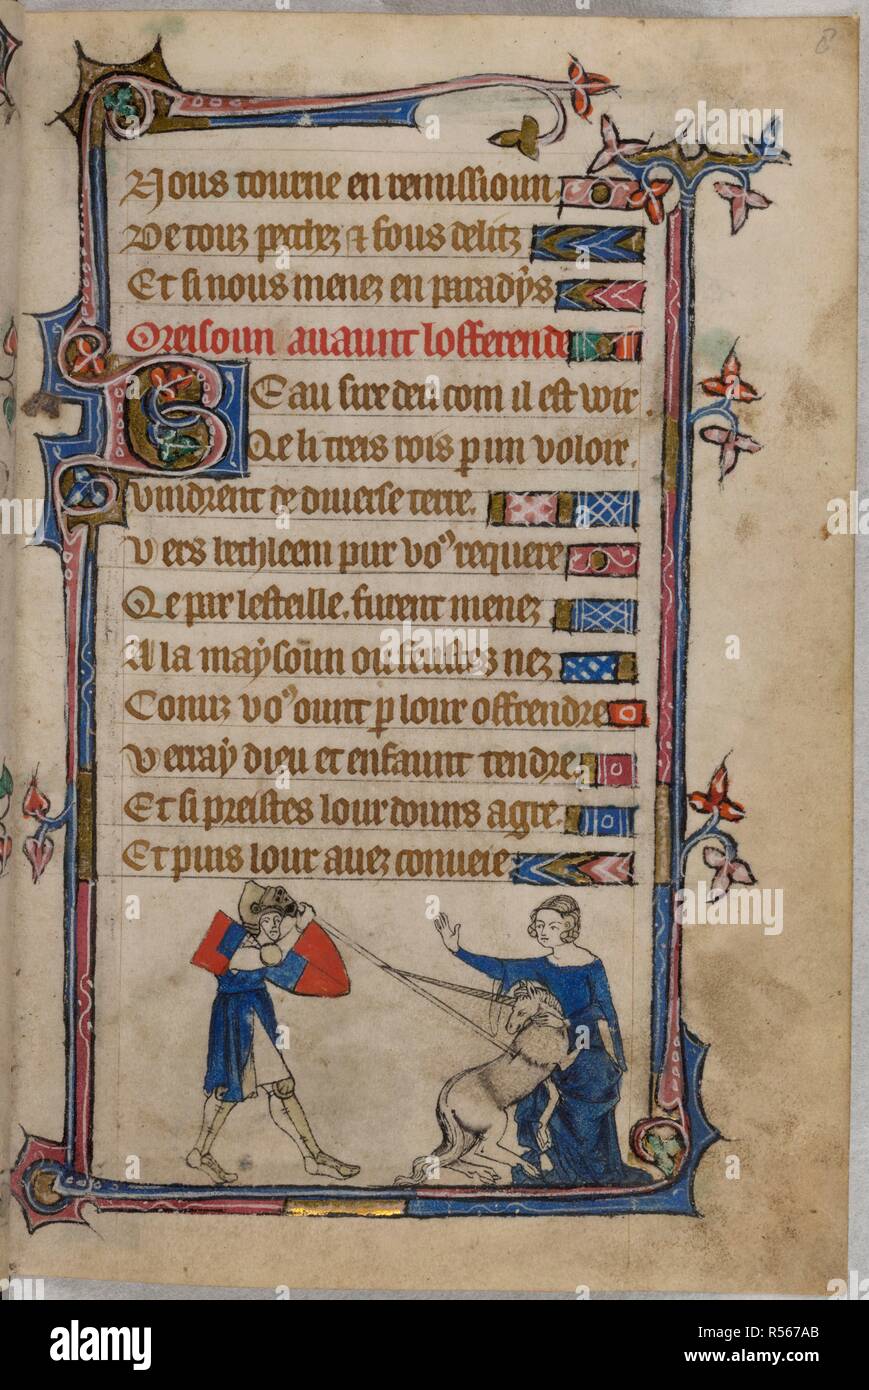 8
Nous tourne en remissioun
De touz pechez & fous delitz
Et si nous menez en paradys
Oreisoun avaunt lofferende
Beau sire deu com il est voir.
Qe li treis rois p un voloir.
vindrent de diverse terre.
Vers bethleem pur vo9 requere
Qe par lesteille. furent menez
A la maysoun ou feustez nez
Conuz vo9 ount p lour offrendre
Verray dieu et enfaunt tendre.
Et si preistes lour douns agre.
Et puis lour avez conveie
alamy
Image ID: R567AB
www.alamy.com